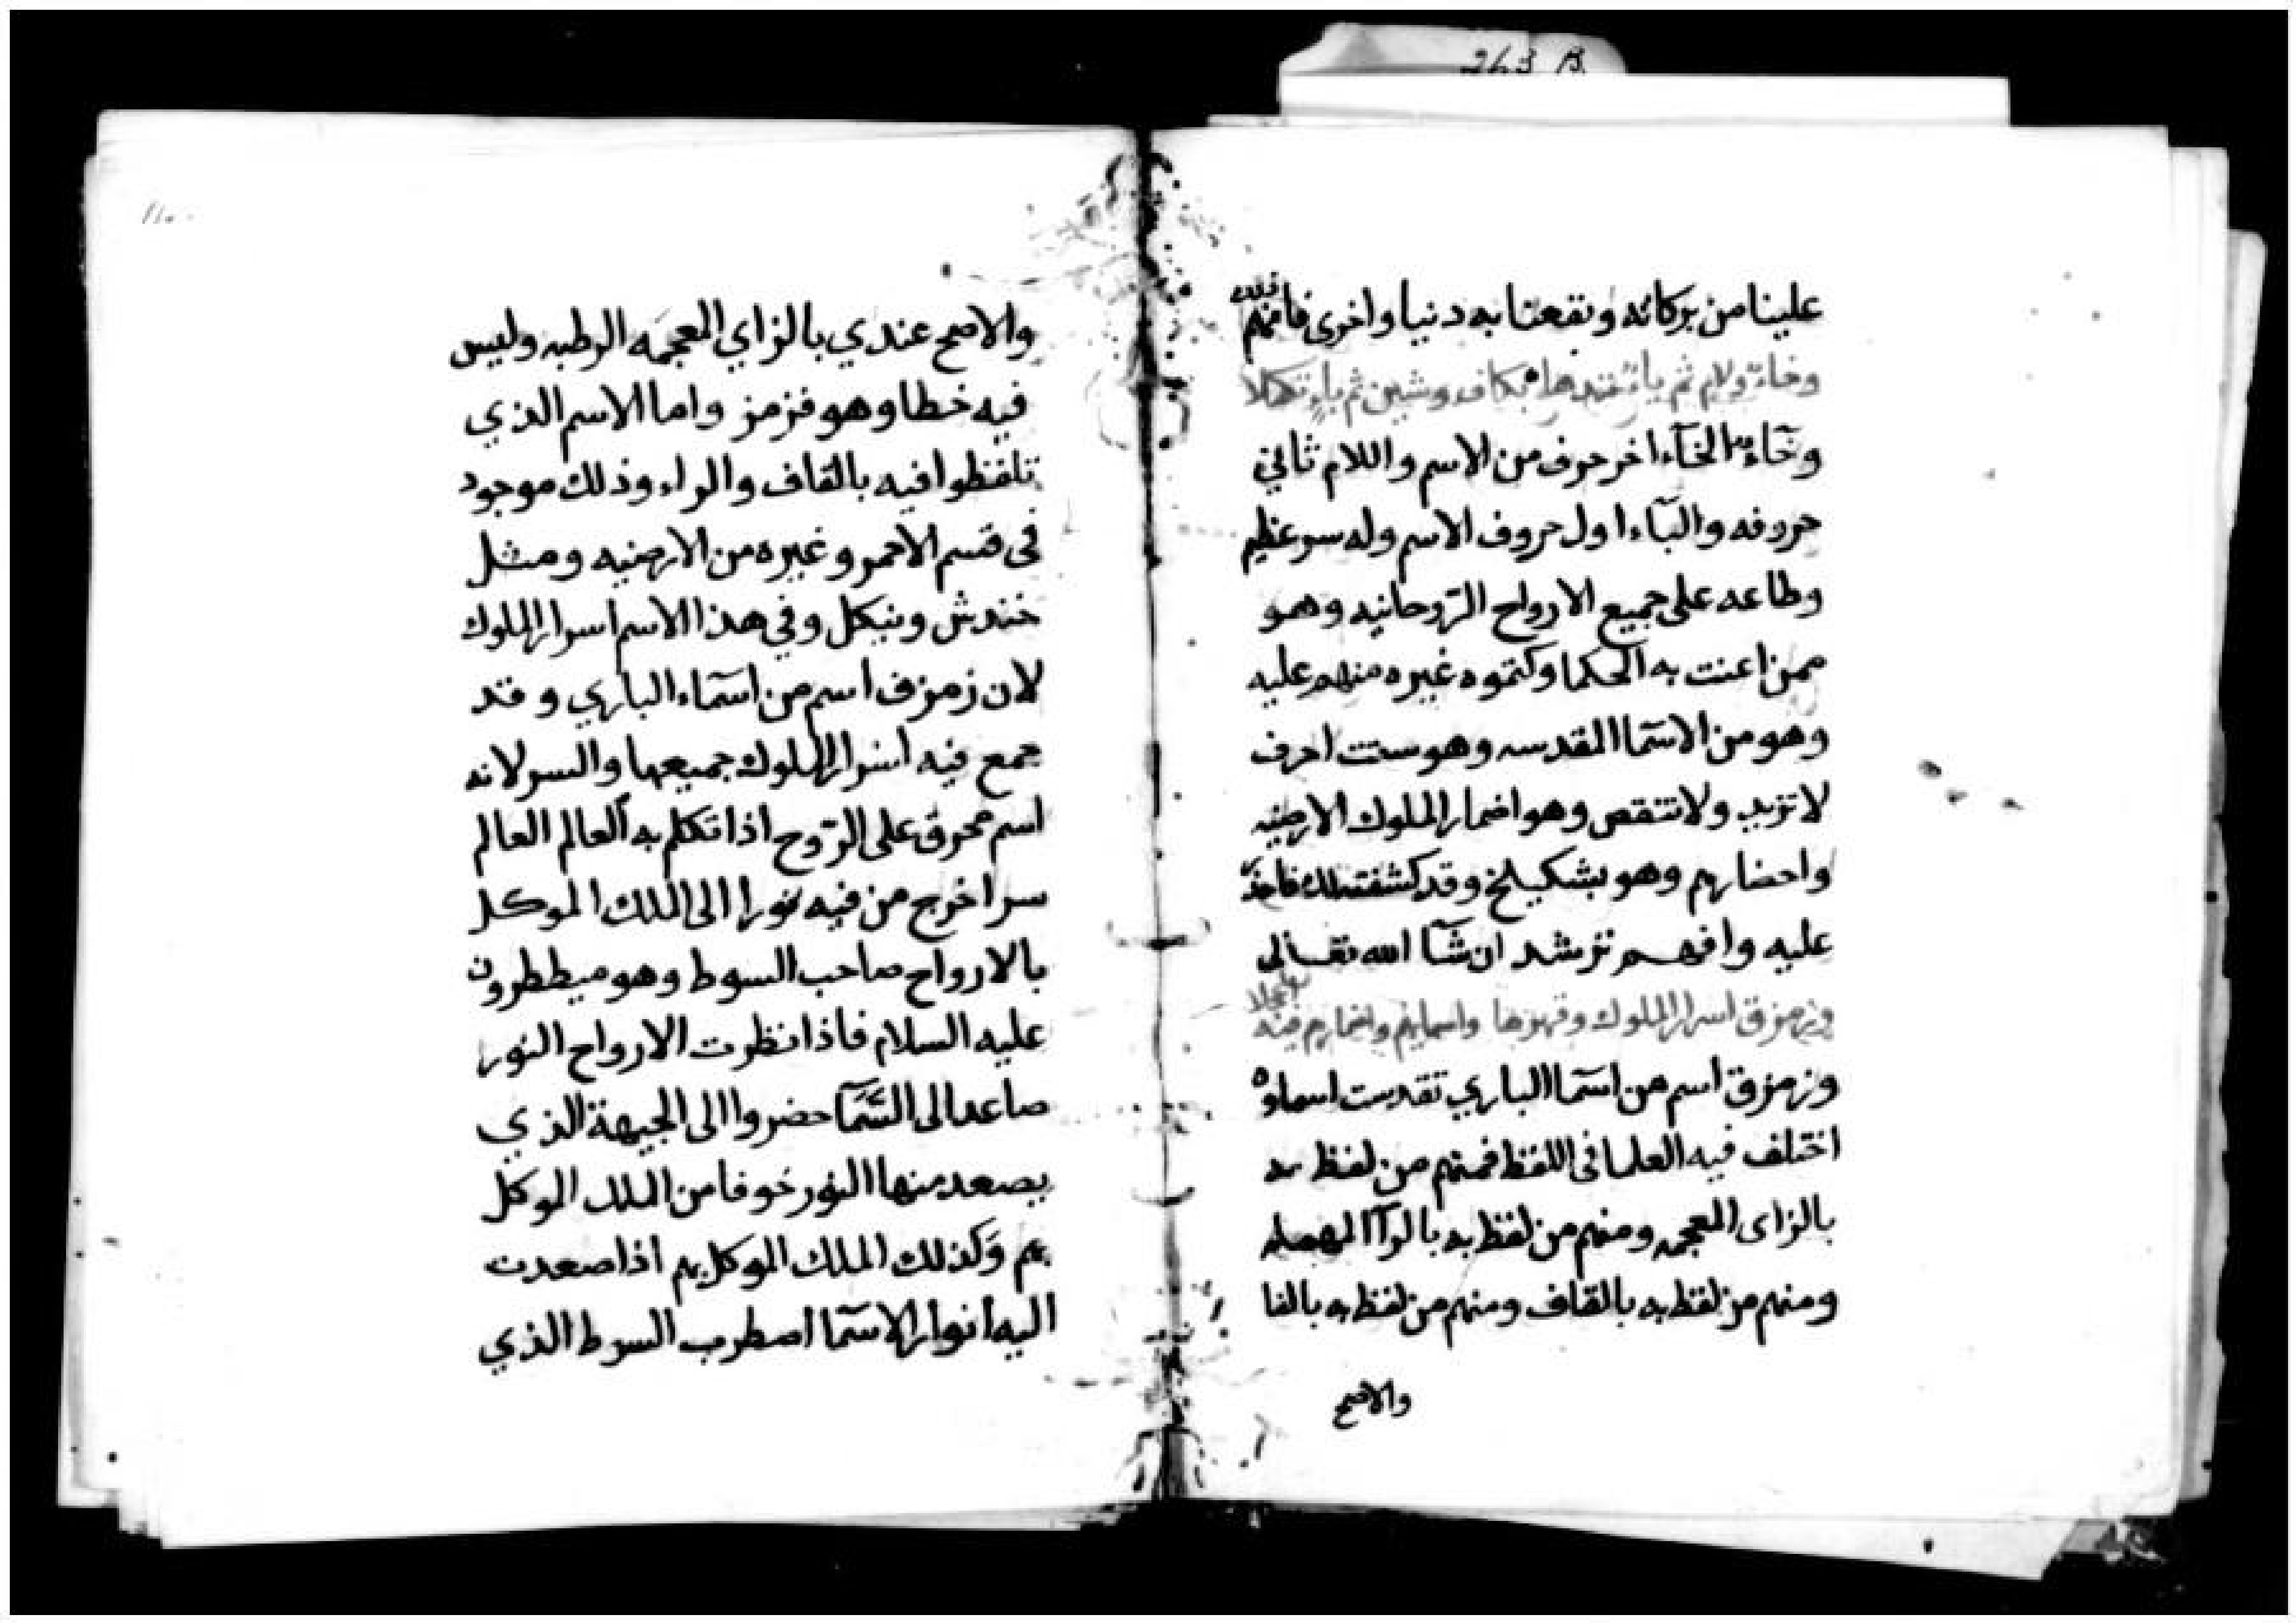 263 B
علينا من بركاته ونفعنا به دنيا واخرى فافهم
وخاءٌ ولام ثم ياء بكاف وشين ثم باءٍ
وخآءٌ الخآء اخر حرف من الاسم واللام ثاني
حروفه والبآء اول حروف الاسم وله سر عظيم
وطاعه على جميع الارواح الرّوحانيه وهو
ممن اعنت به الحكما وكتموه غيره منهم عليه
وهو من الاسمآ المقدسه وهو ستت احرف
لا تزيد ولا تنقص وهو اضمار الملوك الارضيه
واحضارهم وهو بشكيلخ وقد كشفته لك
عليه وافهم ترشد ان شآ الله تعالى
وزمزق اسرار الملوك وقهرها واسمايهم واضمارهم فيه
وزمزق اسم من اسمآ الباري تقدست اسماوه
اختلف فيه العلما فى اللفظ فمنهم من لفظ به
بالزاى المعجمه ومنهم من لفظ به بالرآ المهمله
ومنهم من لفظ به بالقاف ومنهم من لفظ به بالفا
والاصح
والاصح عندي بالزاي المعجمَه الرطبه وليس
فيه خطا وهو فزمز واما الاسم الذي
تلفظوا فيه بالقاف والراء وذلك موجود
فى قسم الاحمر وغيره من الارضيه ومثل
خندش وبنكل وفي هذا الاسم اسرار الملوك
لان زمزف اسم من اسمآء الباري وقد
جمع فيه اسرار الملوك جميعها والسر لانه
اسم محرق على الرّوح اذا تكلم به العالم العالم
سرا خرج من فيه نورا الى الملك الموكل
بالارواح صاحب السوط وهو ميططرون
عليه السلام فاذا نظرت الارواح النور
صاعد الى السَّمَآ حضروا الى الجيهة الذي
يصعد منها النور خوفا من الملك الموكل
بهم وَكذلك الملك الموكل بهم اذا صعدت
اليه انوار الاسمآ اصطرب السوط الذي